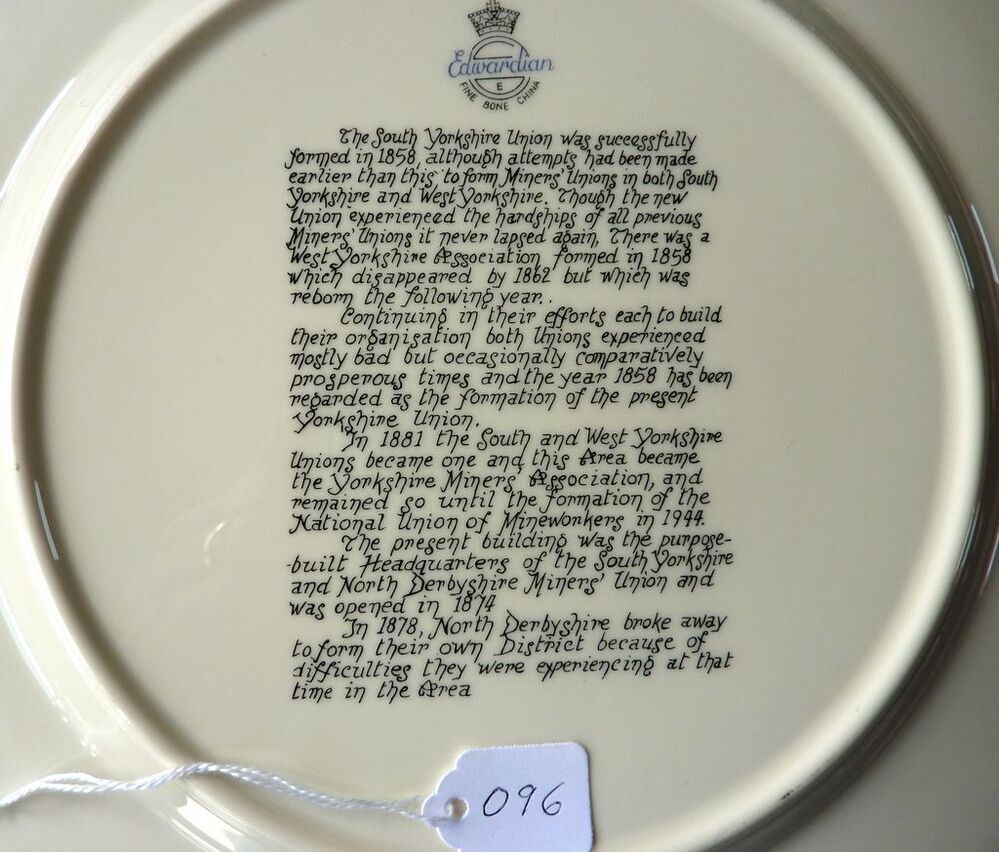 Edwardian
E
FINE BONE CHINA
The South Yorkshire Union was successfully
formed in 1858, although attempts had been made
earlier than this to form Miners' Unions in both South
Yorkshire and West Yorkshire. Though the new
Union experienced the hardships of all previous
Miners' Unions it never lapsed again. There was a
West Yorkshire Association formed in 1858
which disappeared by 1862 but which was
reborn the following year..
Continuing in their efforts each to build
their organisation both Unions experienced
mostly bad but occasionally comparatively
prosperous times and the year 1858 has been
regarded as the formation of the present
Yorkshire Union.
In 1881 the South and West Yorkshire
Unions became one and this Area became
the Yorkshire Miners' Association, and
remained so until the formation of the
National Union of Mineworkers in 1944.
The present building was the purpose-
-built Headquarters of the South Yorkshire
and North Derbyshire Miners' Union and
was opened in 1874
In 1878, North Derbyshire broke away
to form their own District because of
difficulties they were experiencing at that
time in the Area
096